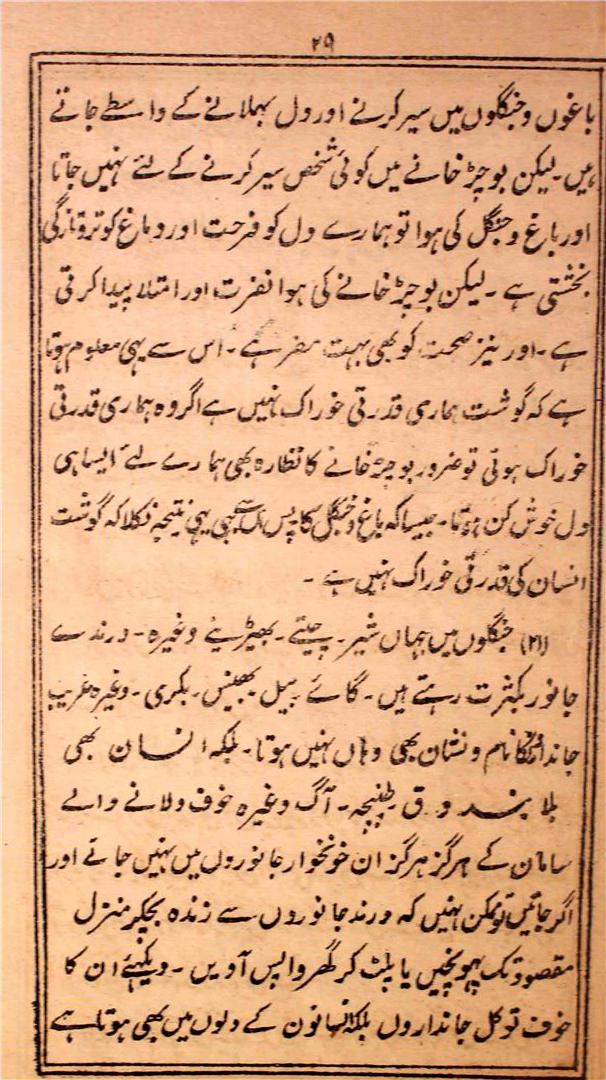 ۲۹
باغوں و جنگلوں میں سیر کرنے اور دل بہلانے کے واسطے جاتے
ہیں۔ لیکن بوچڑ خانے میں کوئی شخص سیر کرنے کے لئے نہیں جاتا
اور باغ و جنگل کی ہوا تو ہمارے دل کو فرحت اور دماغ کو تروتازگی
بخشتی ہے۔ لیکن بوچڑ خانے کی ہوا نفرت اور امتلا پیدا کرتی
ہے۔ اور نیز صحت کو بھی بہت مضر ہے۔ اس سے یہی معلوم ہوتا
ہے کہ گوشت ہماری قدرتی خوراک نہیں ہے اگر وہ ہماری قدرتی
خوراک ہوتی تو ضرور بوچڑ خانے کا نظارہ بھی ہمارے لئے ایسا ہی
دل خوش کن ہوتا۔ جیسا کہ باغ و جنگل کا پس اس سے بھی یہی نتیجہ نکلا کہ گوشت
انسان کی قدرتی خوراک نہیں ہے۔
(۲۱) جنگلوں میں جہاں شیر۔ چیتے۔ بھیڑیئے وغیرہ۔ درندے
جانور بکثرت رہتے ہیں۔ گائے۔ بیل۔ بھینس۔ بکری۔ وغیرہ غریب
جانداروں کا نام و نشان بھی وہاں نہیں ہوتا۔ بلکہ انسان بھی
بلا بندوق۔ طپنچہ۔ آگ وغیرہ خوف دلانے والے
سامان کے ہرگز ہرگز ان خونخوار جانوروں میں نہیں جاتے اور
اگر جائیں تو ممکن نہیں کہ درند جانوروں سے زندہ بچکر منزل
مقصود تک پہونچیں یا پلٹ کر گھر واپس آویں۔ دیکھئے ان کا
خوف تو کل جانداروں بلکہ انسانون کے دلوں میں بھی ہوتا ہے